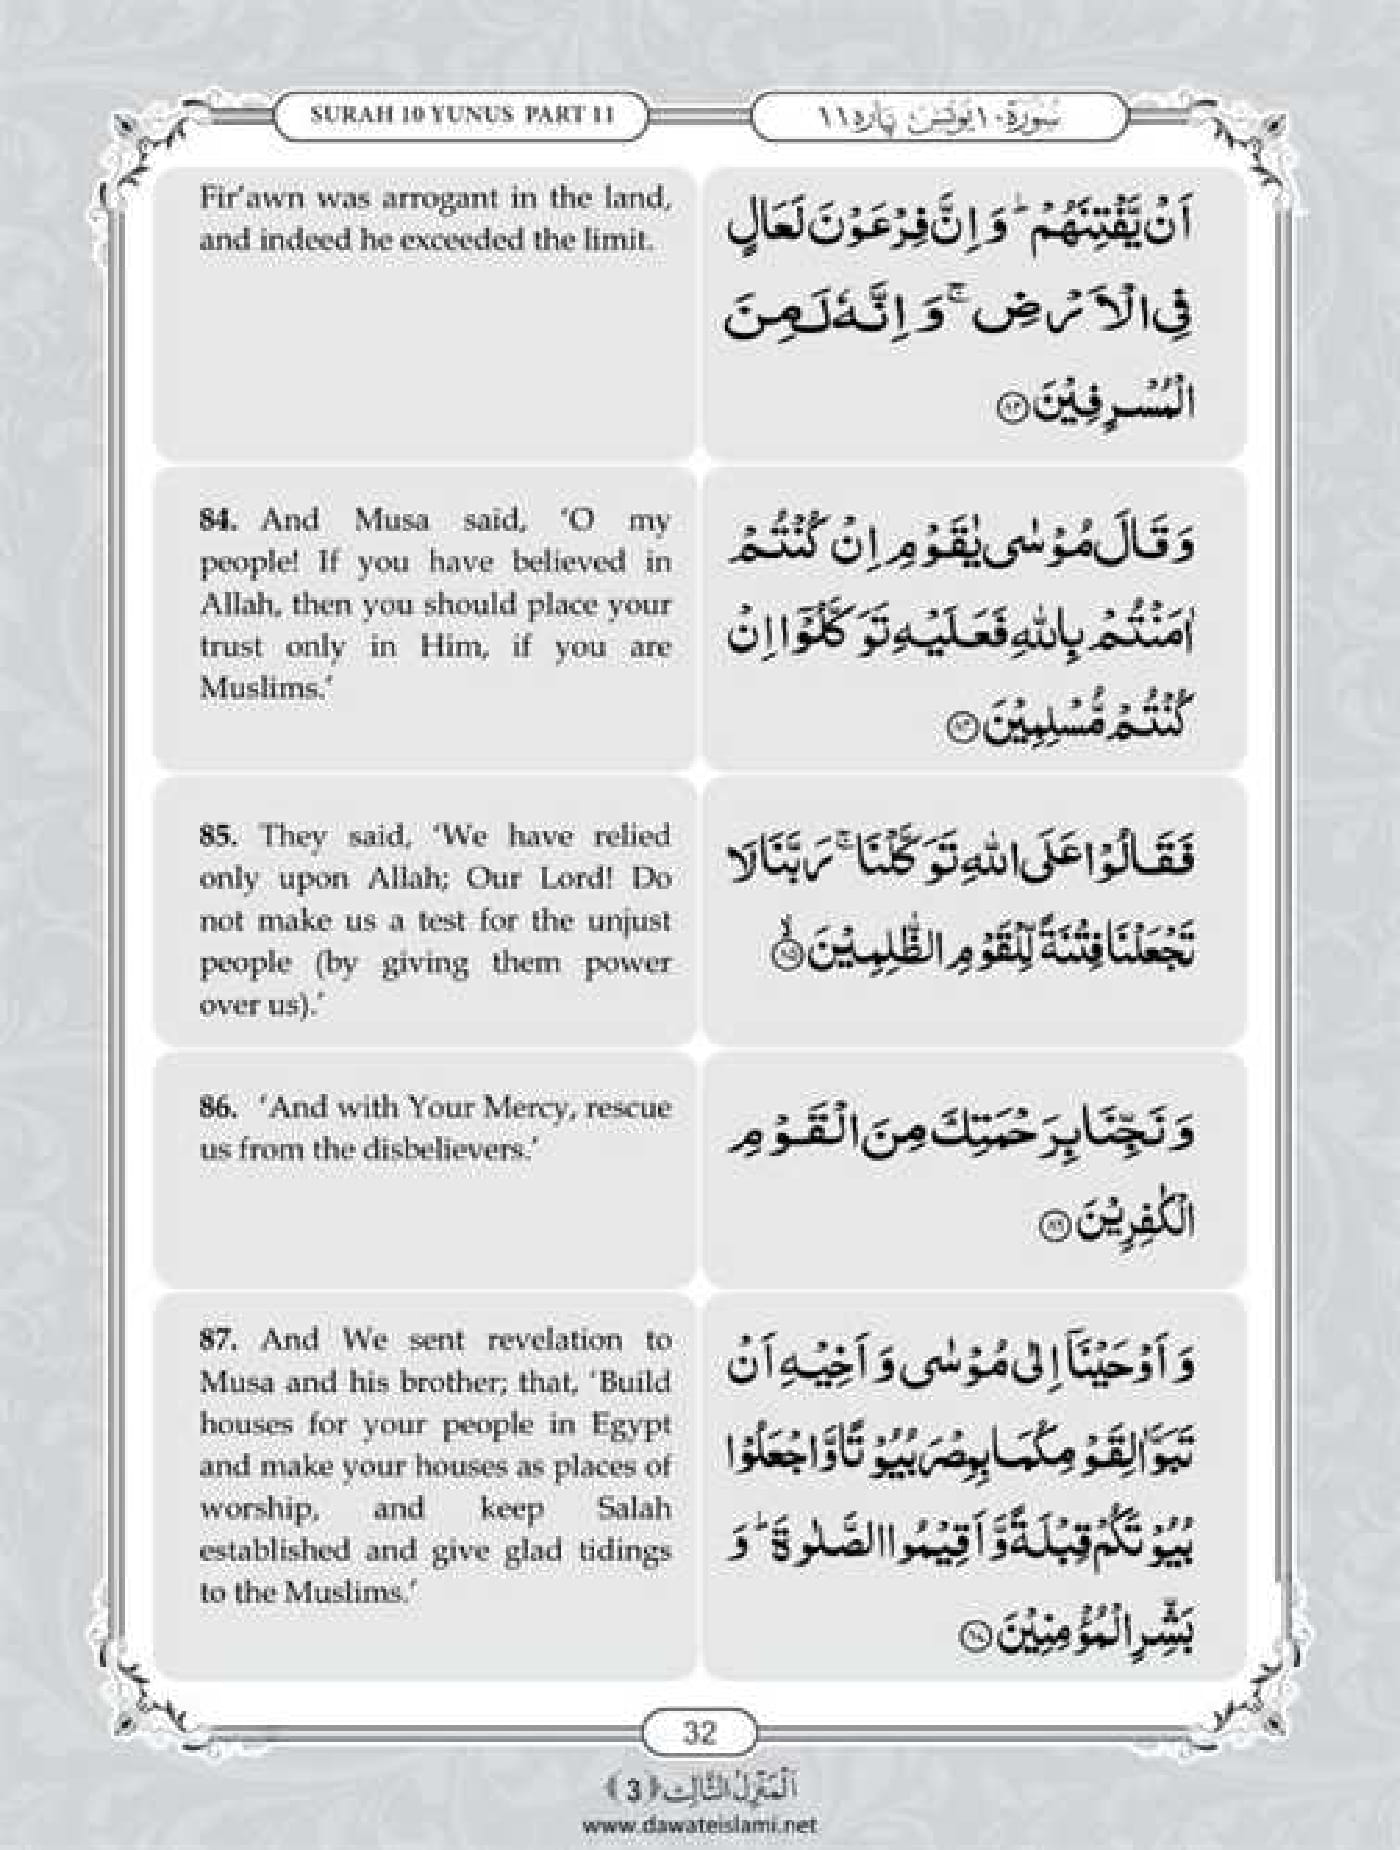 SURAH 10 YUNUS PART 11
سُوْرَة ١٠ يُوْنُس پَارَه ١١
Fir'awn was arrogant in the land,
and indeed he exceeded the limit.
اَنْ يَّفْتِنَهُمْ ؕ وَ اِنَّ فِرْعَوْنَ لَعَالٍ
فِی الْاَرْضِ ۚ وَ اِنَّهٗ لَمِنَ
الْمُسْرِفِيْنَ ﴿۸۳﴾
84. And Musa said, ‘O my
people! If you have believed in
Allah, then you should place your
trust only in Him, if you are
Muslims.’
وَ قَالَ مُوْسٰى يٰقَوْمِ اِنْ كُنْتُمْ
اٰمَنْتُمْ بِاللّٰهِ فَعَلَيْهِ تَوَكَّلُوْۤا اِنْ
كُنْتُمْ مُّسْلِمِيْنَ ﴿۸۴﴾
85. They said, ‘We have relied
only upon Allah; Our Lord! Do
not make us a test for the unjust
people (by giving them power
over us).’
فَقَالُوْا عَلَى اللّٰهِ تَوَكَّلْنَا ۚ رَبَّنَا لَا
تَجْعَلْنَا فِتْنَةً لِّلْقَوْمِ الظّٰلِمِيْنَ ﴿ۙ۸۵﴾
86. ‘And with Your Mercy, rescue
us from the disbelievers.’
وَ نَجِّنَا بِرَحْمَتِكَ مِنَ الْقَوْمِ
الْكٰفِرِيْنَ ﴿۸۶﴾
87. And We sent revelation to
Musa and his brother; that, ‘Build
houses for your people in Egypt
and make your houses as places of
worship, and keep Salah
established and give glad tidings
to the Muslims.’
وَ اَوْحَيْنَاۤ اِلٰى مُوْسٰى وَ اَخِيْهِ اَنْ
تَبَوَّاٰ لِقَوْمِكُمَا بِمِصْرَ بُيُوْتًا وَّ اجْعَلُوْا
بُيُوْتَكُمْ قِبْلَةً وَّ اَقِيْمُوا الصَّلٰوةَ ؕ وَ
بَشِّرِ الْمُؤْمِنِيْنَ ﴿۸۷﴾
32
اَلْمَنْزِلُ الثَّالِث ﴿3﴾
www.dawateislami.net